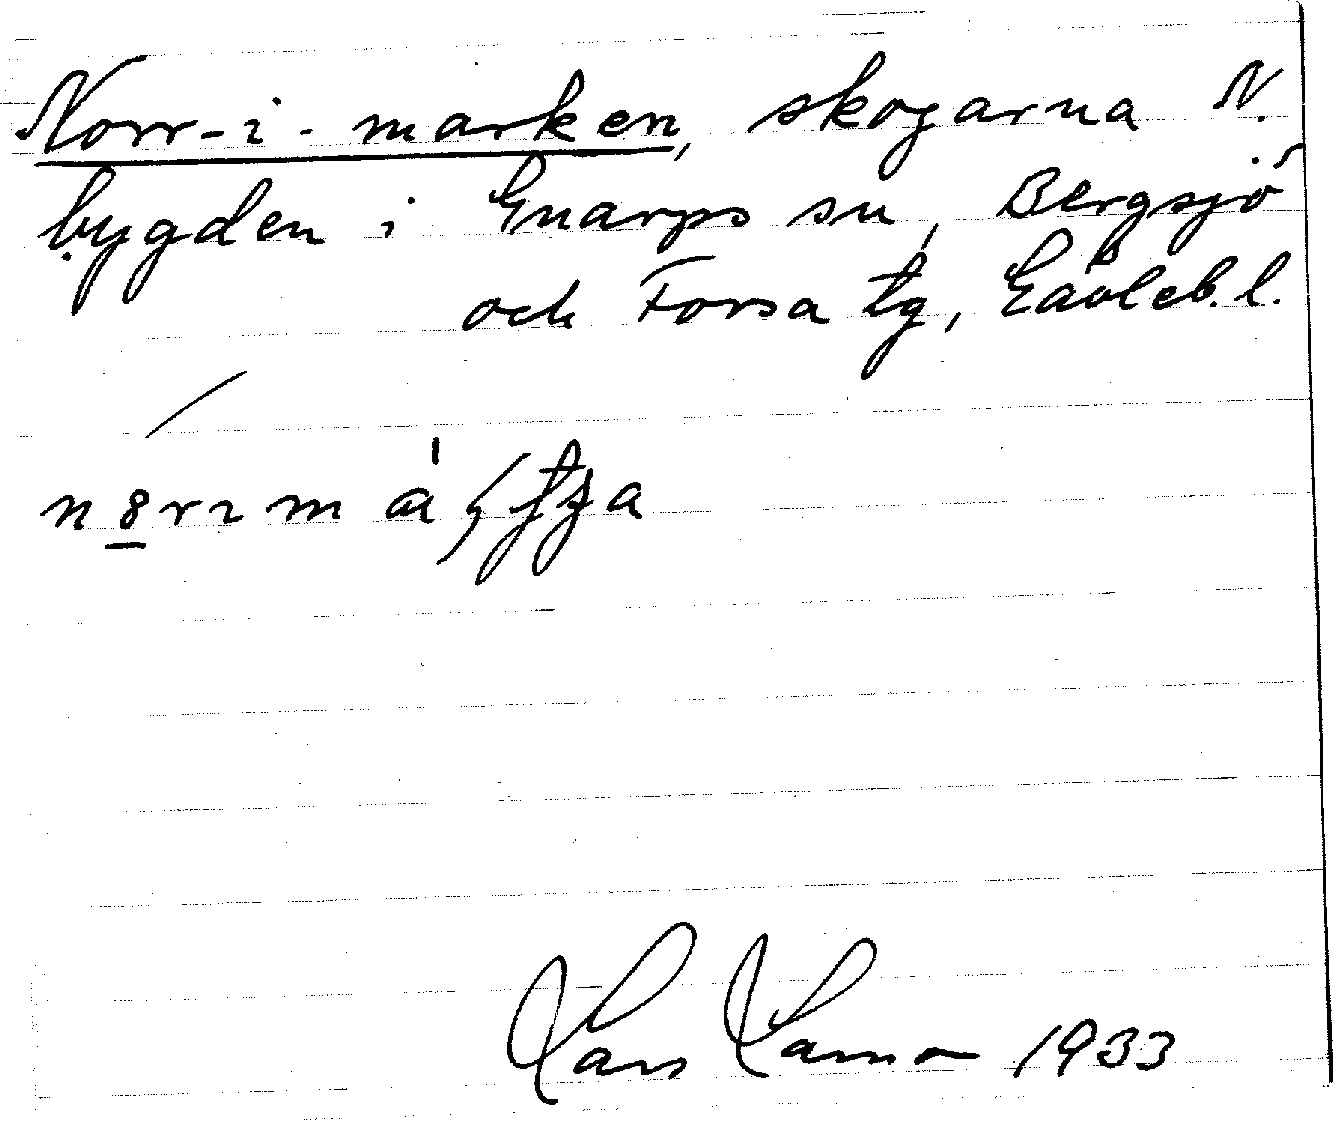 Norr-i-marken, skogarna N.
bygden i Gnarps sn, Bergsjö
och Forsa tg, Gävleb. l.
Lars 1933